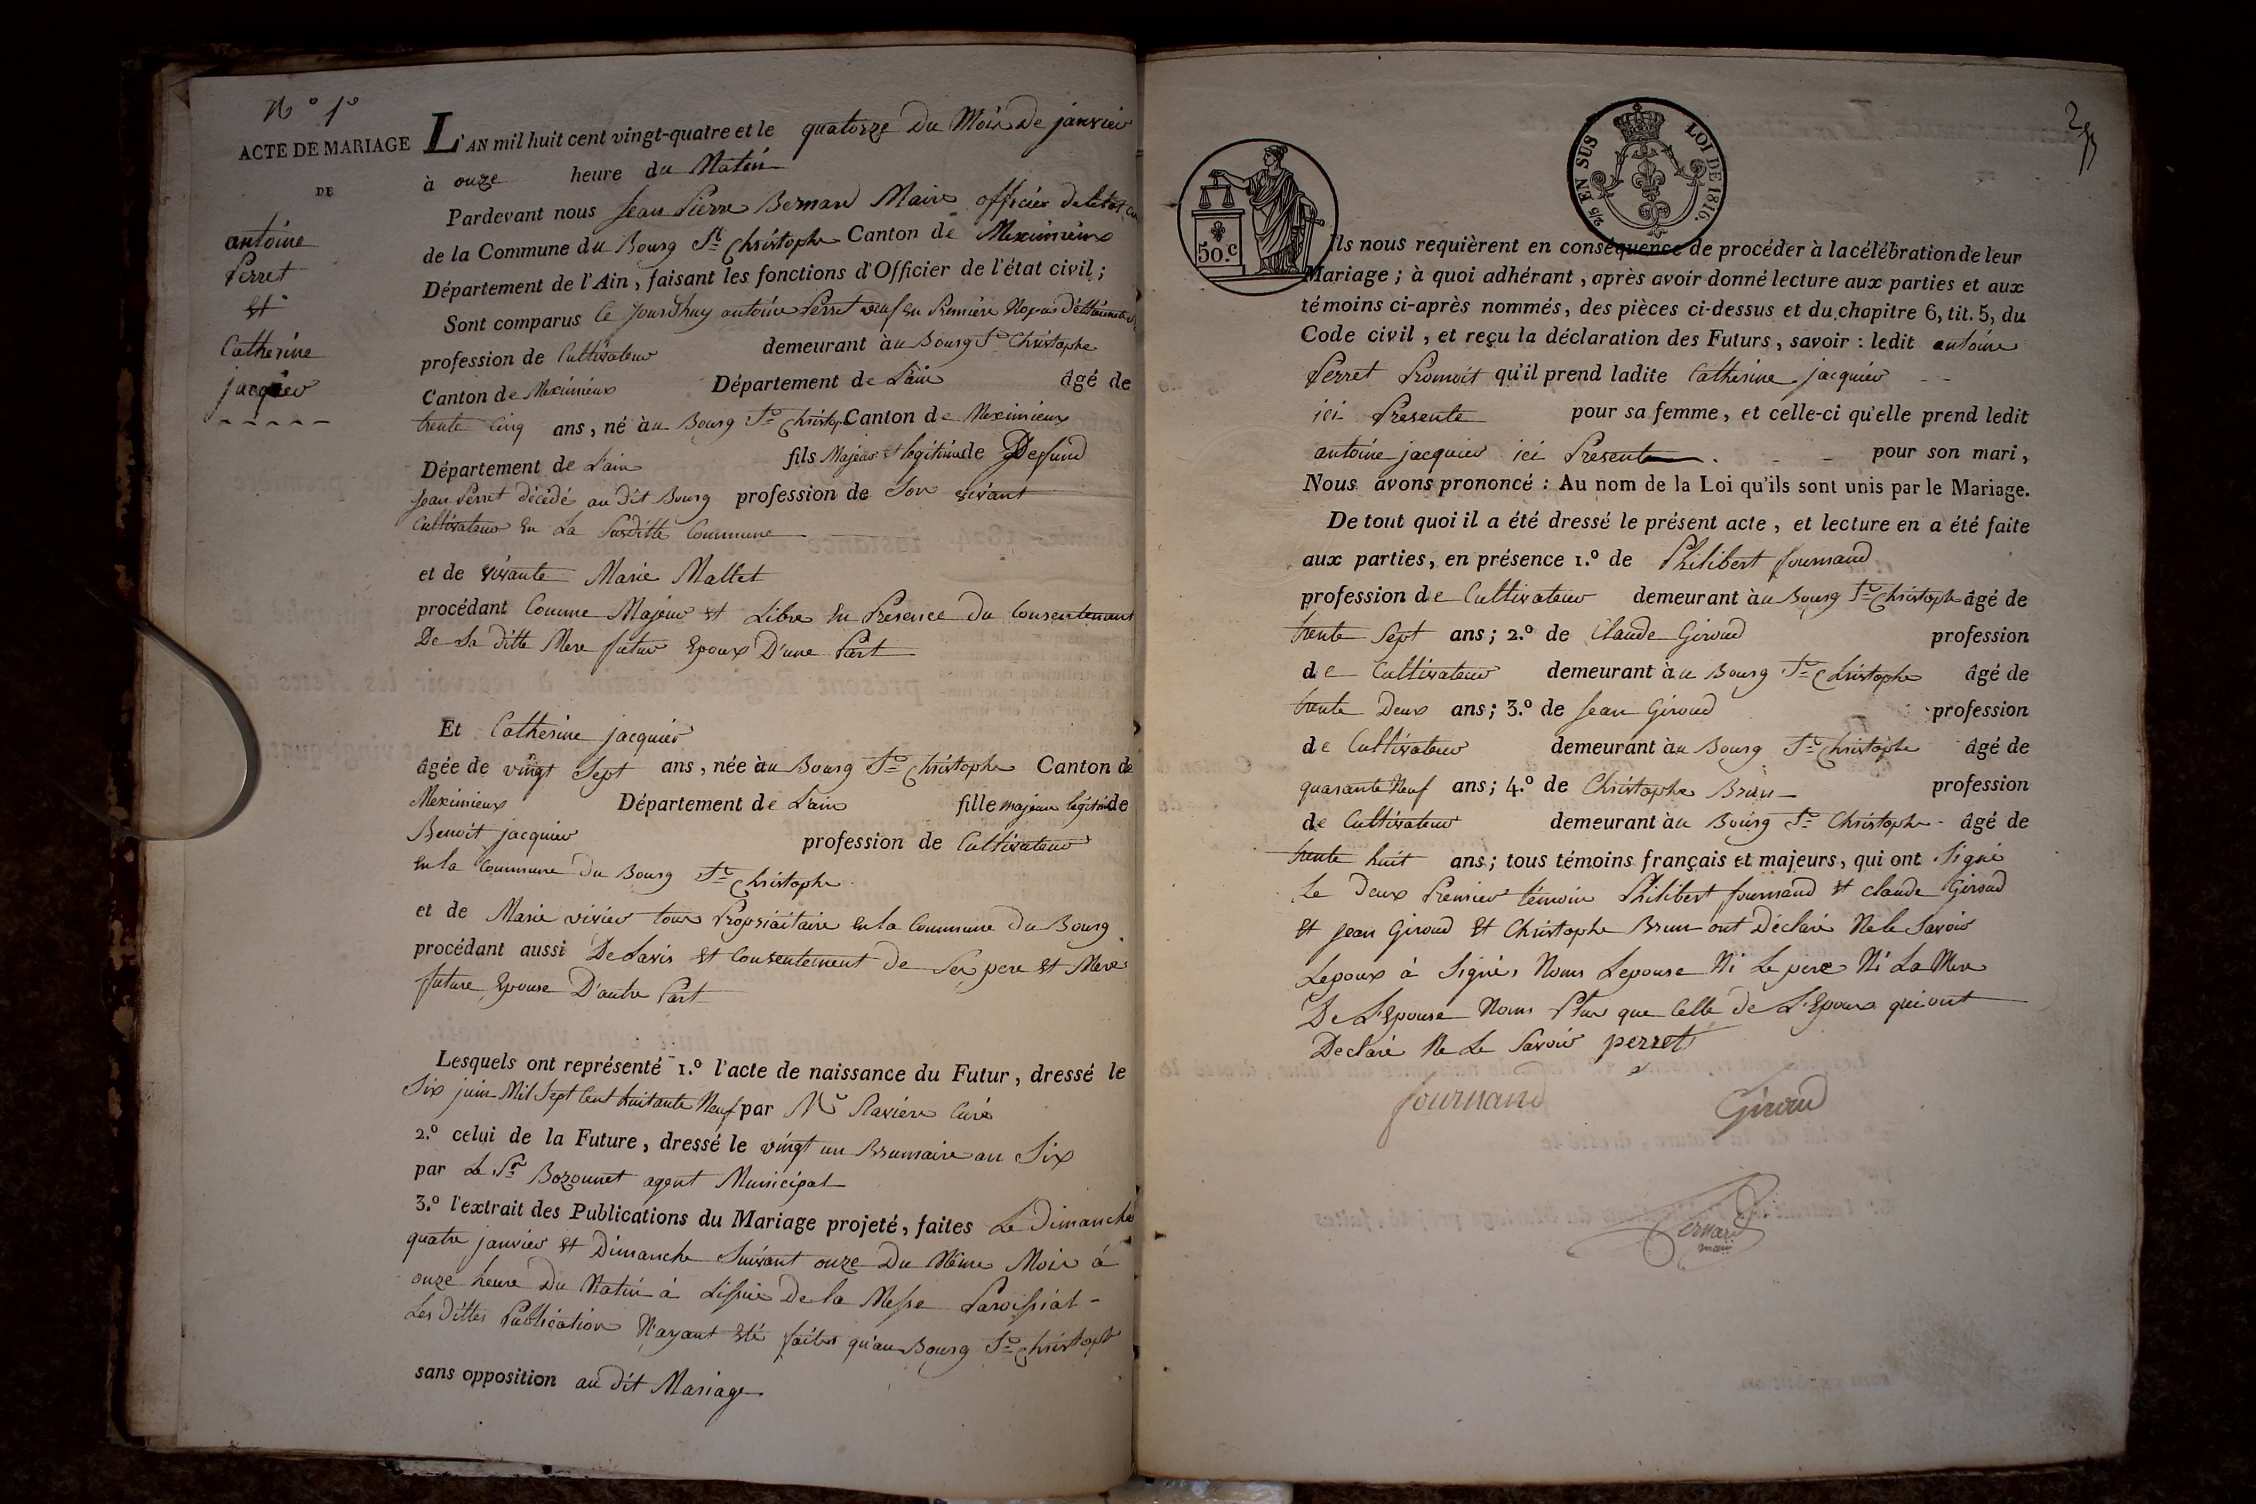 N° 1°
ACTE DE MARIAGE
DE
antoine
Perret
Et
Catherine
jacquier
L'AN mil huit cent vingt-quatre et le quatorze Du Mois De janvier
à onze heure du Matin
Pardevant nous Jean Pierre Bernard Maire officier De letat
de la Commune du Bourg St Christophe Canton de Meximieux
Département de l'Ain, faisant les fonctions d'Officier de l'état civil;
Sont comparus Ce Jourdhuy antoine Perret veuf En Premiere Noces
profession de Cultivateur demeurant à u Bourg St Christophe
Canton de Meximieux Département de L'ain âgé de
trente Cinq ans, né à u Bourg St Christop Canton de Meximieux
Département de L'ain fils Majeur Et legitime de Defund
Jean Perret décédé au dit Bourg profession de Son vivant
Cultivateur En La Susditte Commune
et de vivante Marie Mallet
procédant Comme Majeur Et Libre En Presence Du Consentement
De Sa ditte Mere futur Epoux D'une Part
Et Catherine jacquier
âgée de vingt Sept ans, née à u Bourg St Christophe Canton de
Meximieux Département de L'ain fille majeure legitime de
Benoit jacquier profession de Cultivateur
En la Commune Du Bourg St Christophe
et de Marie vivier tous Propriaitaire En la Commune Du Bourg
procédant aussi De Lavis Et Consentement de Ses pere Et Mere
future Epouse D'autre Part
Lesquels ont représenté 1.° l'acte de naissance du Futur, dressé le
Six juin Mil Sept Cent huitante Neuf par Mr Ravier Curé
2.° celui de la Future, dressé le vingt un Brumaire an Six
par Le Sr Bozonnet agent Municipal
3.° l'extrait des Publications du Mariage projeté, faites Le Dimanche
quatre janvier Et Dimanche Suivant onze Du Même Mois á
onze heure Du Matin á Lissue De la Messe Paroissial -
Les Dittes Publication N'ayant Eté faites qu'au Bourg St Christophe
sans opposition au dit Mariage
50.c
2/5 EN SUS LOI DE 1816.
Ils nous requièrent en conséquence de procéder à la célébration de leur
Mariage; à quoi adhérant, après avoir donné lecture aux parties et aux
témoins ci-après nommés, des pièces ci-dessus et du chapitre 6, tit. 5, du
Code civil, et reçu la déclaration des Futurs, savoir: ledit antoine
Perret Promoit qu'il prend ladite Catherine jacquier - -
ici Presente pour sa femme, et celle-ci qu'elle prend ledit
antoine jacquier ici Present . - - pour son mari,
Nous avons prononcé: Au nom de la Loi qu'ils sont unis par le Mariage.
De tout quoi il a été dressé le présent acte, et lecture en a été faite
aux parties, en présence 1.° de Philibert fournand
profession de Cultivateur demeurant à u Bourg St Christophe âgé de
trente Sept ans; 2.° de Claude Giroud profession
de Cultivateur demeurant à u Bourg St Christophe âgé de
trente Deux ans; 3.° de Jean Giroud profession
de Cultivateur demeurant à u Bourg St Christophe âgé de
quarante Neuf ans; 4.° de Christophe Brun profession
de Cultivateur demeurant à u Bourg St Christophe âgé de
trente huit ans; tous témoins français et majeurs, qui ont Signé
Le Deux Premier témoin Philibert fournand Et Claude Giroud
Et Jean Giroud Et Christophe Brun ont Déclaré Ne le Savoir
Lepoux à Signé, Nons Lepouse Ni Le pere Ni La Mere
De L'Epouse Nons Plus que Celle De L'Epoux qui ont
Declaré Ne Le Savoir perret
fournand
Giroud
Bernard
maire